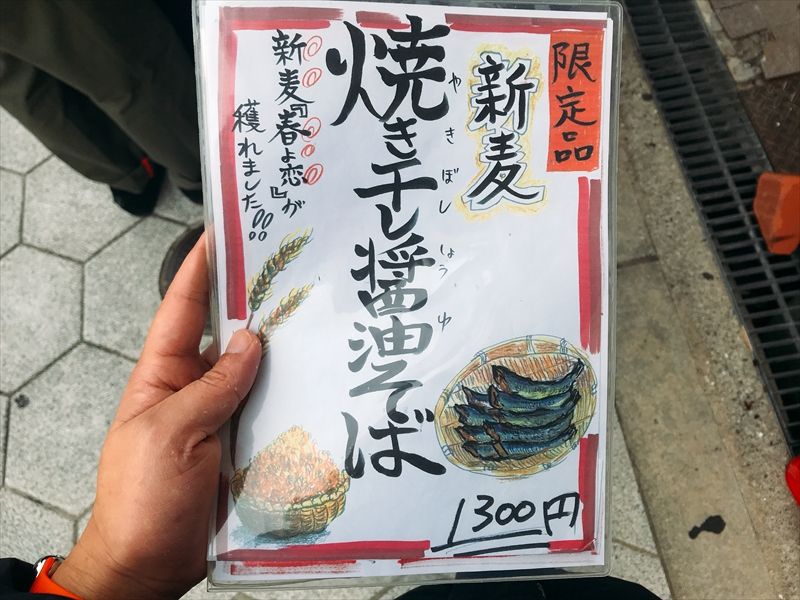 限定品
新麦
焼き干し醤油そば
やきぼししょうゆ
新麦『春よ恋』が
穫れました!!!
1300円